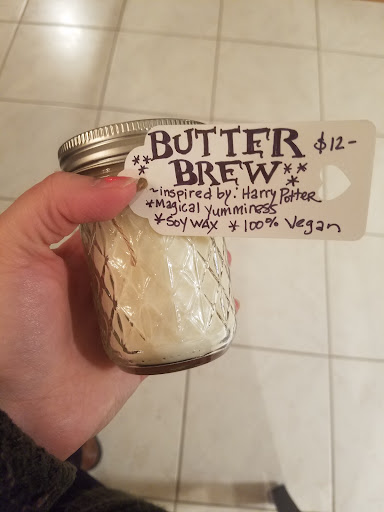 BUTTER $12-
**BREW**
~inspired by: Harry Potter
*Magical yumminess *
*Soy wax * 100% Vegan